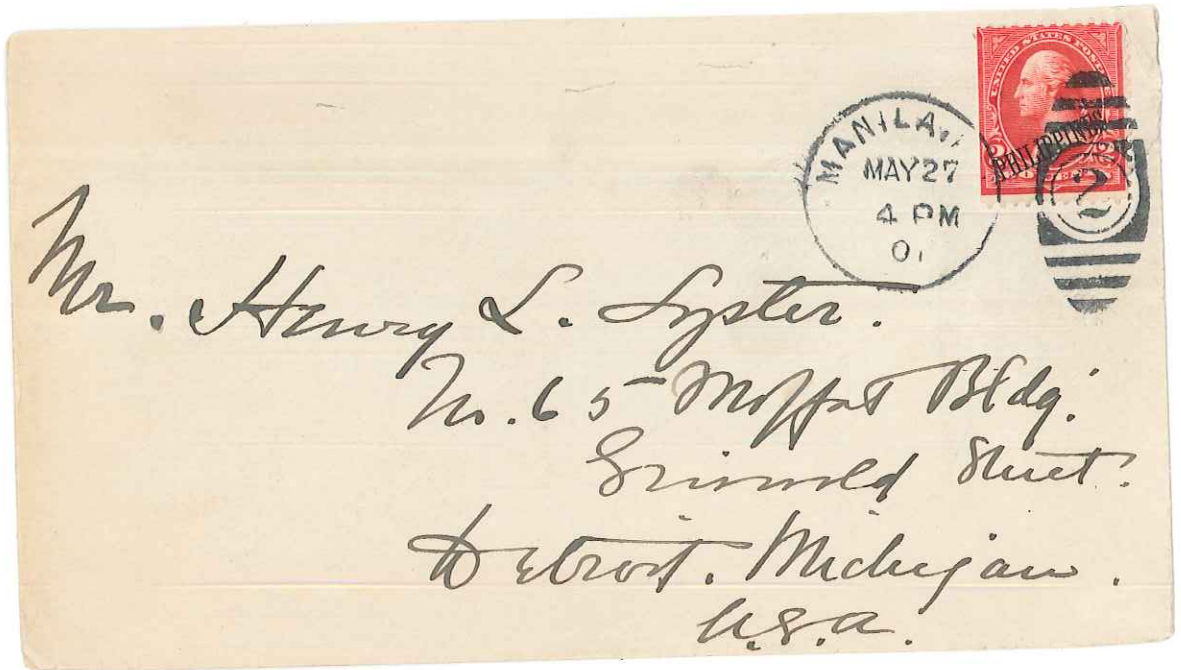 UNITED STATES POSTAGE
PHILIPPINES
MANILA,
MAY 27
4 PM
01
2
Mr. Henry L. Lyster.
No. 65 Moffat Bldg.
Griswold Street.
Detroit. Michigan.
U.S.A.